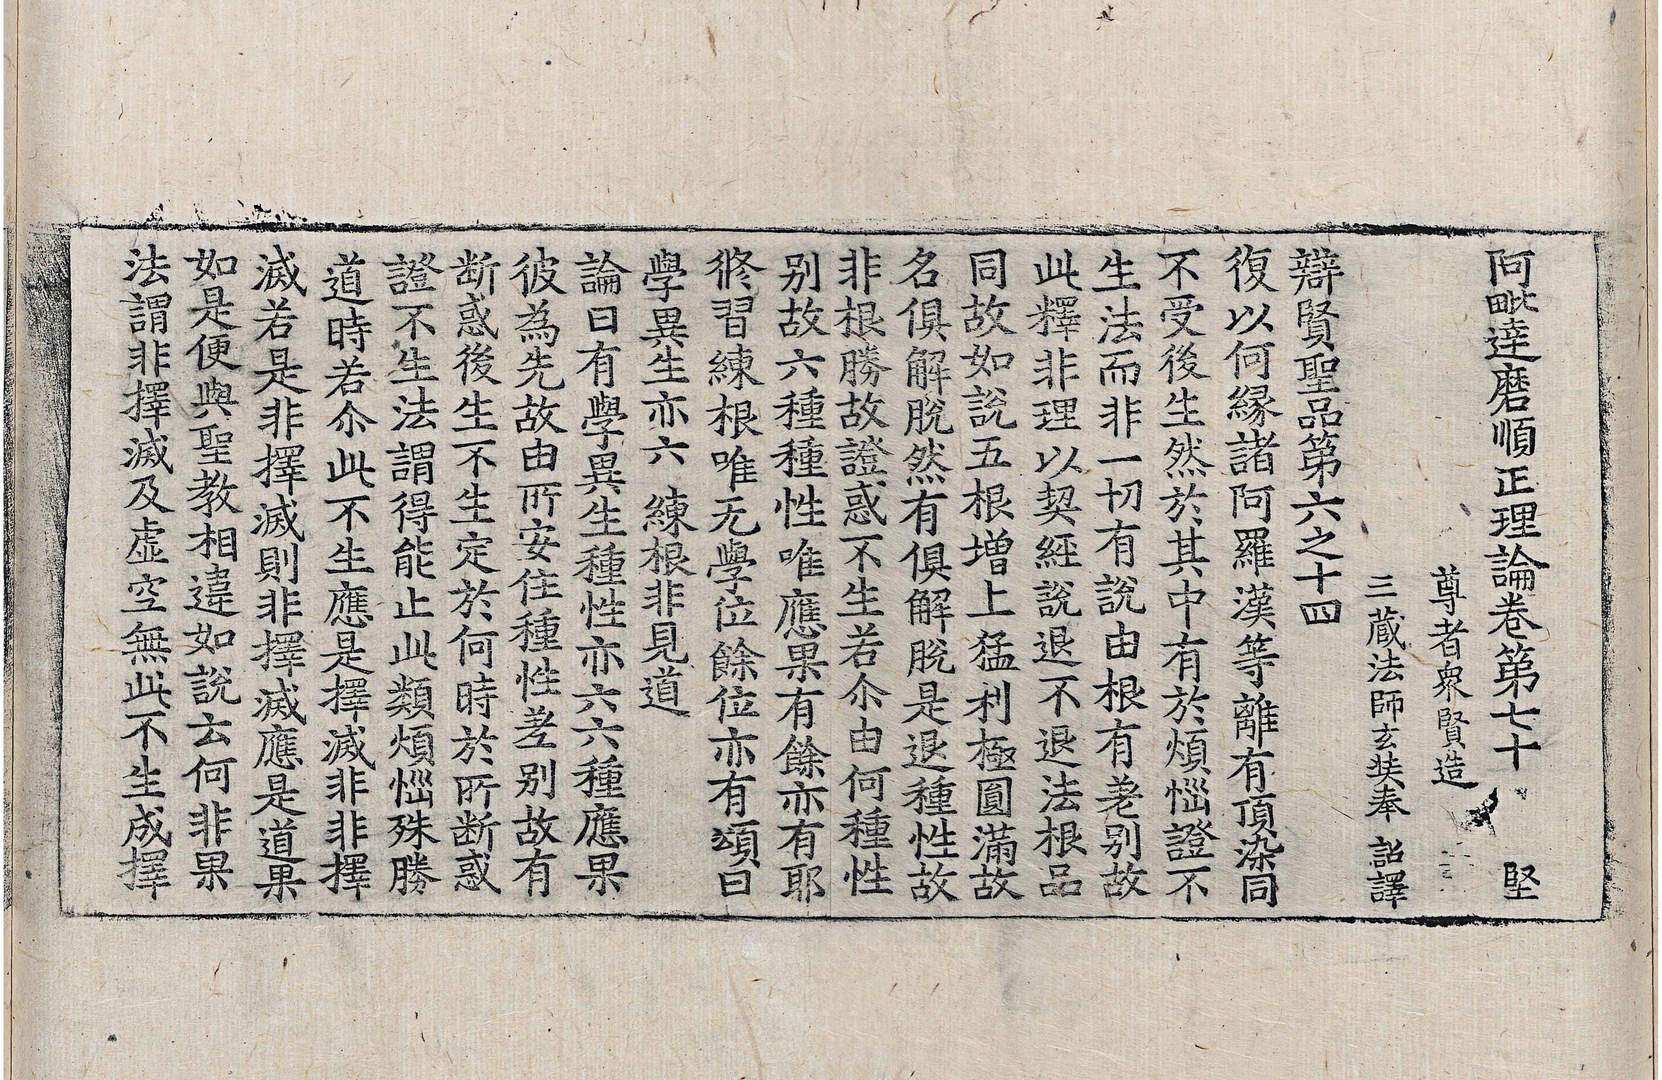 阿毗達磨順正理論卷第七十 堅
尊者衆賢造
三藏法師玄奘奉 詔譯
辯賢聖品第六之十四
復以何緣諸阿羅漢等離有頂染同
不受後生然於其中有於煩惱證不
生法而非一切有說由根有差別故
此釋非理以契經說退不退法根品
同故如說五根增上猛利極圓滿故
名俱解脫然有俱解脫是退種性故
非根勝故證惑不生若尒由何種性
別故六種種性唯應果有餘亦有耶
修習練根唯无學位餘位亦有頌曰
學異生亦六 練根非見道
論曰有學異生種性亦六六種應果
彼為先故由所安住種性差別故有
斷惑後生不生定於何時於所斷惑
證不生法謂得能止此類煩惱殊勝
道時若尒此不生應是擇滅非非擇
滅若是非擇滅則非擇滅應是道果
如是便與聖教相違如說云何非果
法謂非擇滅及虛空無此不生成擇